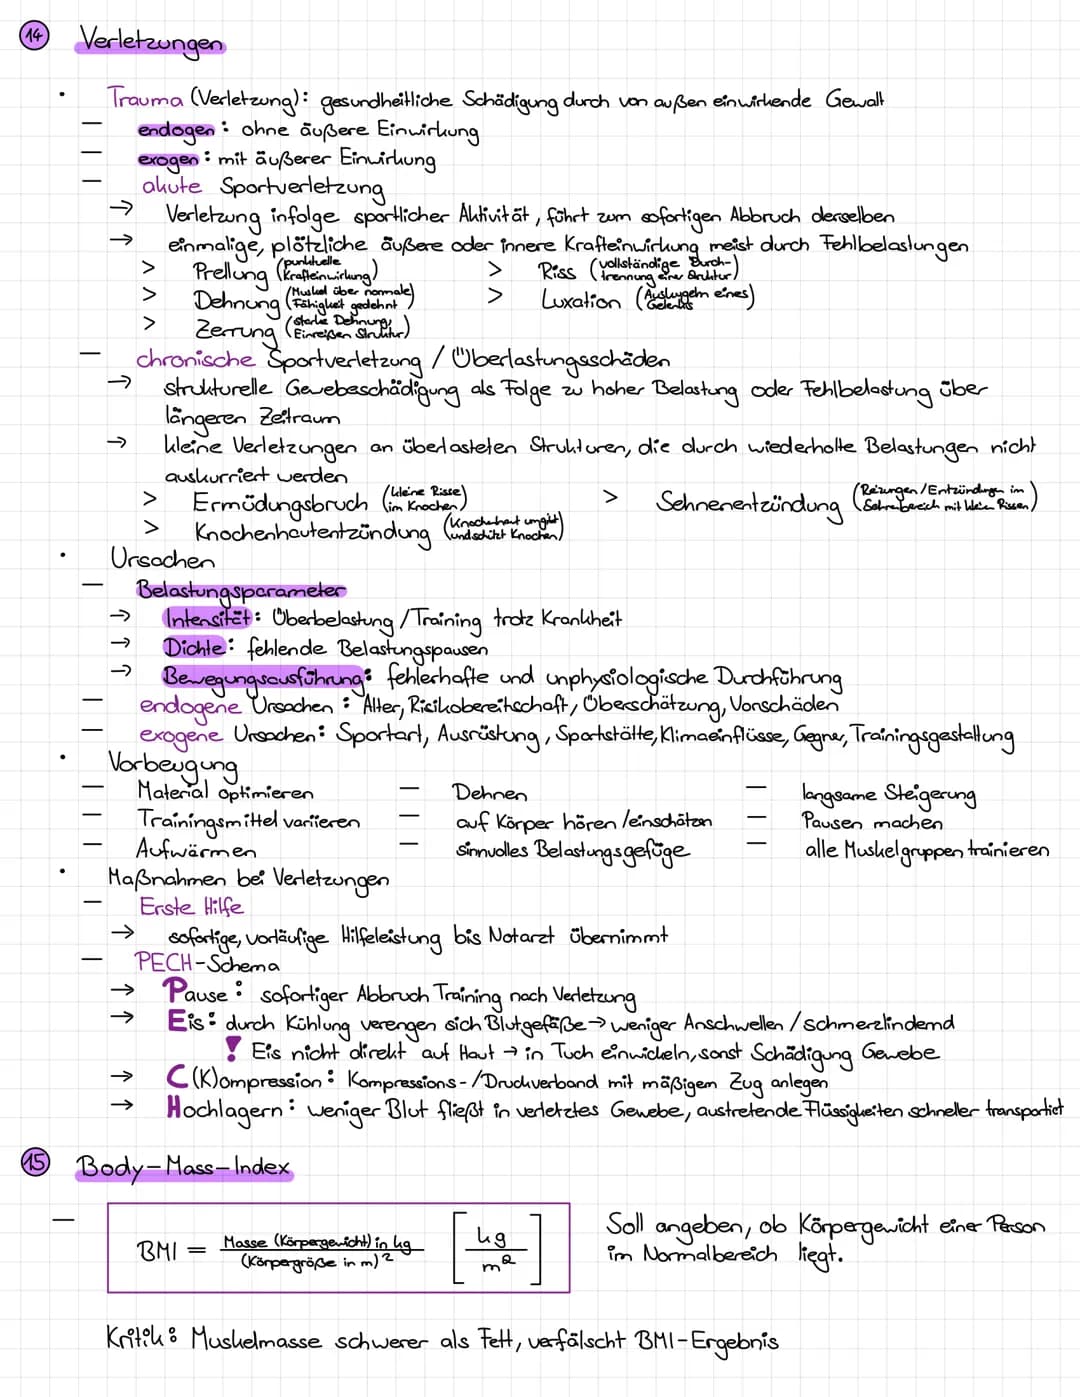 14 Verletzungen
• Trauma (Verletzung): gesundheitliche Schädigung durch von außen einwirkende Gewalt
— endogen: ohne äußere Einwirkung
— exogen: mit äußerer Einwirkung
— akute Sportverletzung
→ Verletzung infolge sportlicher Aktivität, führt zum sofortigen Abbruch derselben
→ einmalige, plötzliche äußere oder innere Krafteinwirkung meist durch Fehlbelastungen
> Prellung (punktuelle Krafteinwirkung) > Riss (vollständige Durch-trennung einer Struktur)
> Dehnung (Muskel über normale Fähigkeit gedehnt) > Luxation (Auskugeln eines Gelenks)
> Zerrung (starke Dehnung, Einreißen Struktur)
— chronische Sportverletzung / Überlastungsschäden
→ strukturelle Gewebeschädigung als Folge zu hoher Belastung oder Fehlbelastung über
längeren Zeitraum
→ kleine Verletzungen an überlasteten Strukturen, die durch wiederholte Belastungen nicht
auskurriert werden
> Ermüdungsbruch (kleine Risse im Knochen) > Sehnenentzündung (Reizungen/Entzündungen im Sehnenbereich mit kleinen Rissen)
> Knochenhautentzündung (Knochenhaut umgibt und schützt Knochen)
• Ursachen
— Belastungsparameter
→ Intensität: Überbelastung / Training trotz Krankheit
→ Dichte: fehlende Belastungspausen
→ Bewegungsausführung: fehlerhafte und unphysiologische Durchführung
— endogene Ursachen: Alter, Risikobereitschaft, Überschätzung, Vorschäden
— exogene Ursachen: Sportart, Ausrüstung, Sportstätte, Klimaeinflüsse, Gegner, Trainingsgestaltung
• Vorbeugung
— Material optimieren — Dehnen — langsame Steigerung
— Trainingsmittel variieren — auf Körper hören /einschätzen — Pausen machen
— Aufwärmen — sinnvolles Belastungsgefüge — alle Muskelgruppen trainieren
• Maßnahmen bei Verletzungen
— Erste Hilfe
→ sofortige, vorläufige Hilfeleistung bis Notarzt übernimmt
— PECH-Schema
→ Pause: sofortiger Abbruch Training nach Verletzung
→ Eis: durch Kühlung verengen sich Blutgefäße → weniger Anschwellen / schmerzlindernd
! Eis nicht direkt auf Haut → in Tuch einwickeln, sonst Schädigung Gewebe
→ C(K)ompression: Kompressions-/Druckverband mit mäßigem Zug anlegen
→ Hochlagern: weniger Blut fließt in verletztes Gewebe, austretende Flüssigkeiten schneller transportiert
15 Body-Mass-Index
— BMI = Masse (Körpergewicht) in kg / (Körpergröße in m)² [kg / m²] Soll angeben, ob Körpergewicht einer Person
im Normalbereich liegt.
Kritik: Muskelmasse schwerer als Fett, verfälscht BMI-Ergebnis